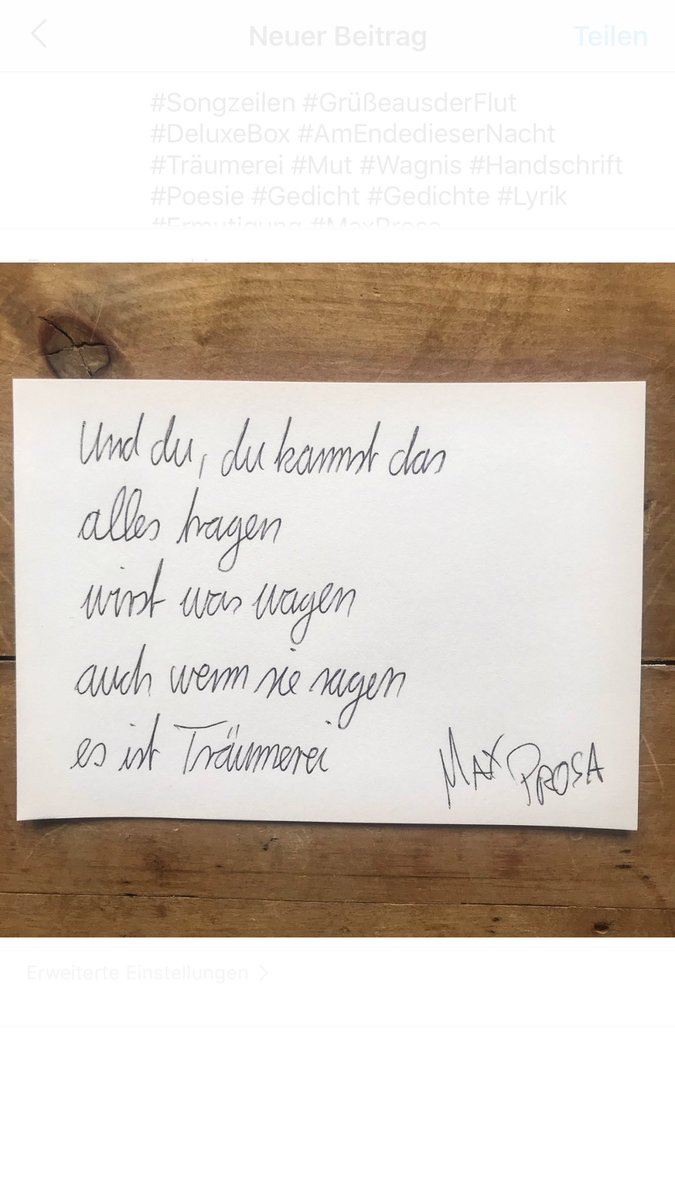 Neuer Beitrag
Teilen
#Songzeilen #GrüßeausderFlut
#DeluxeBox #AmEndedieserNacht
#Träumerei #Mut #Wagnis #Handschrift
#Poesie #Gedicht #Gedichte #Lyrik
#Ermutigung #MaxProsa
Und du, du kannst das
alles tragen
wirst was wagen
auch wenn sie sagen
es ist Träumerei
MAX PROSA
Erweiterte Einstellungen